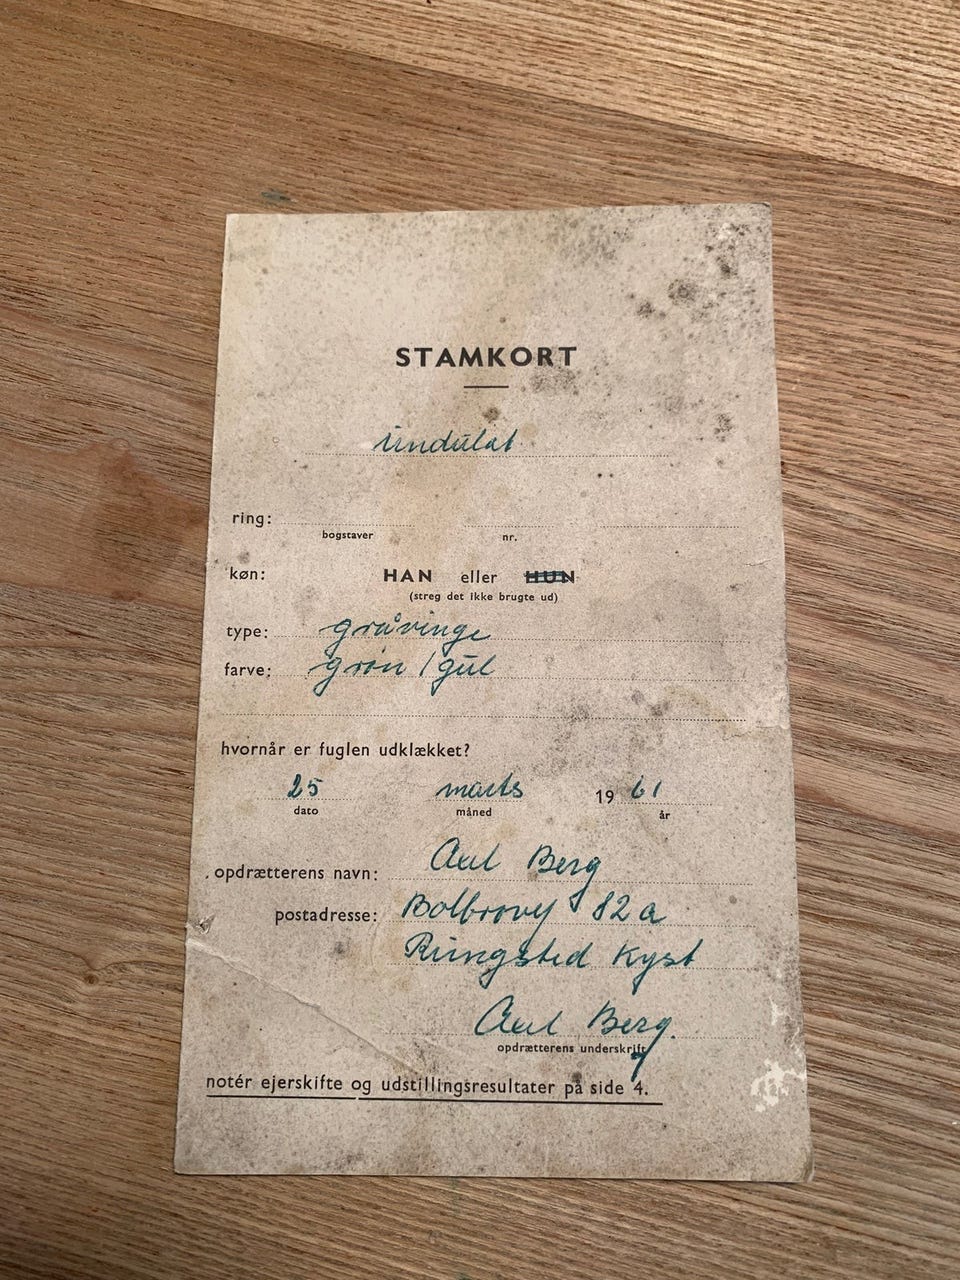 STAMKORT
undulat
ring:
bogstaver nr.
køn: HAN eller HUN
(streg det ikke brugte ud)
type: gråvinge
farve: grøn / gul
hvornår er fuglen udklækket?
25 marts 19 61
dato måned år
opdrætterens navn: Axel Berg
postadresse: Bolbrovej 82 a
Rungsted Kyst
Axel Berg.
opdrætterens underskrift
notér ejerskifte og udstillingsresultater på side 4.